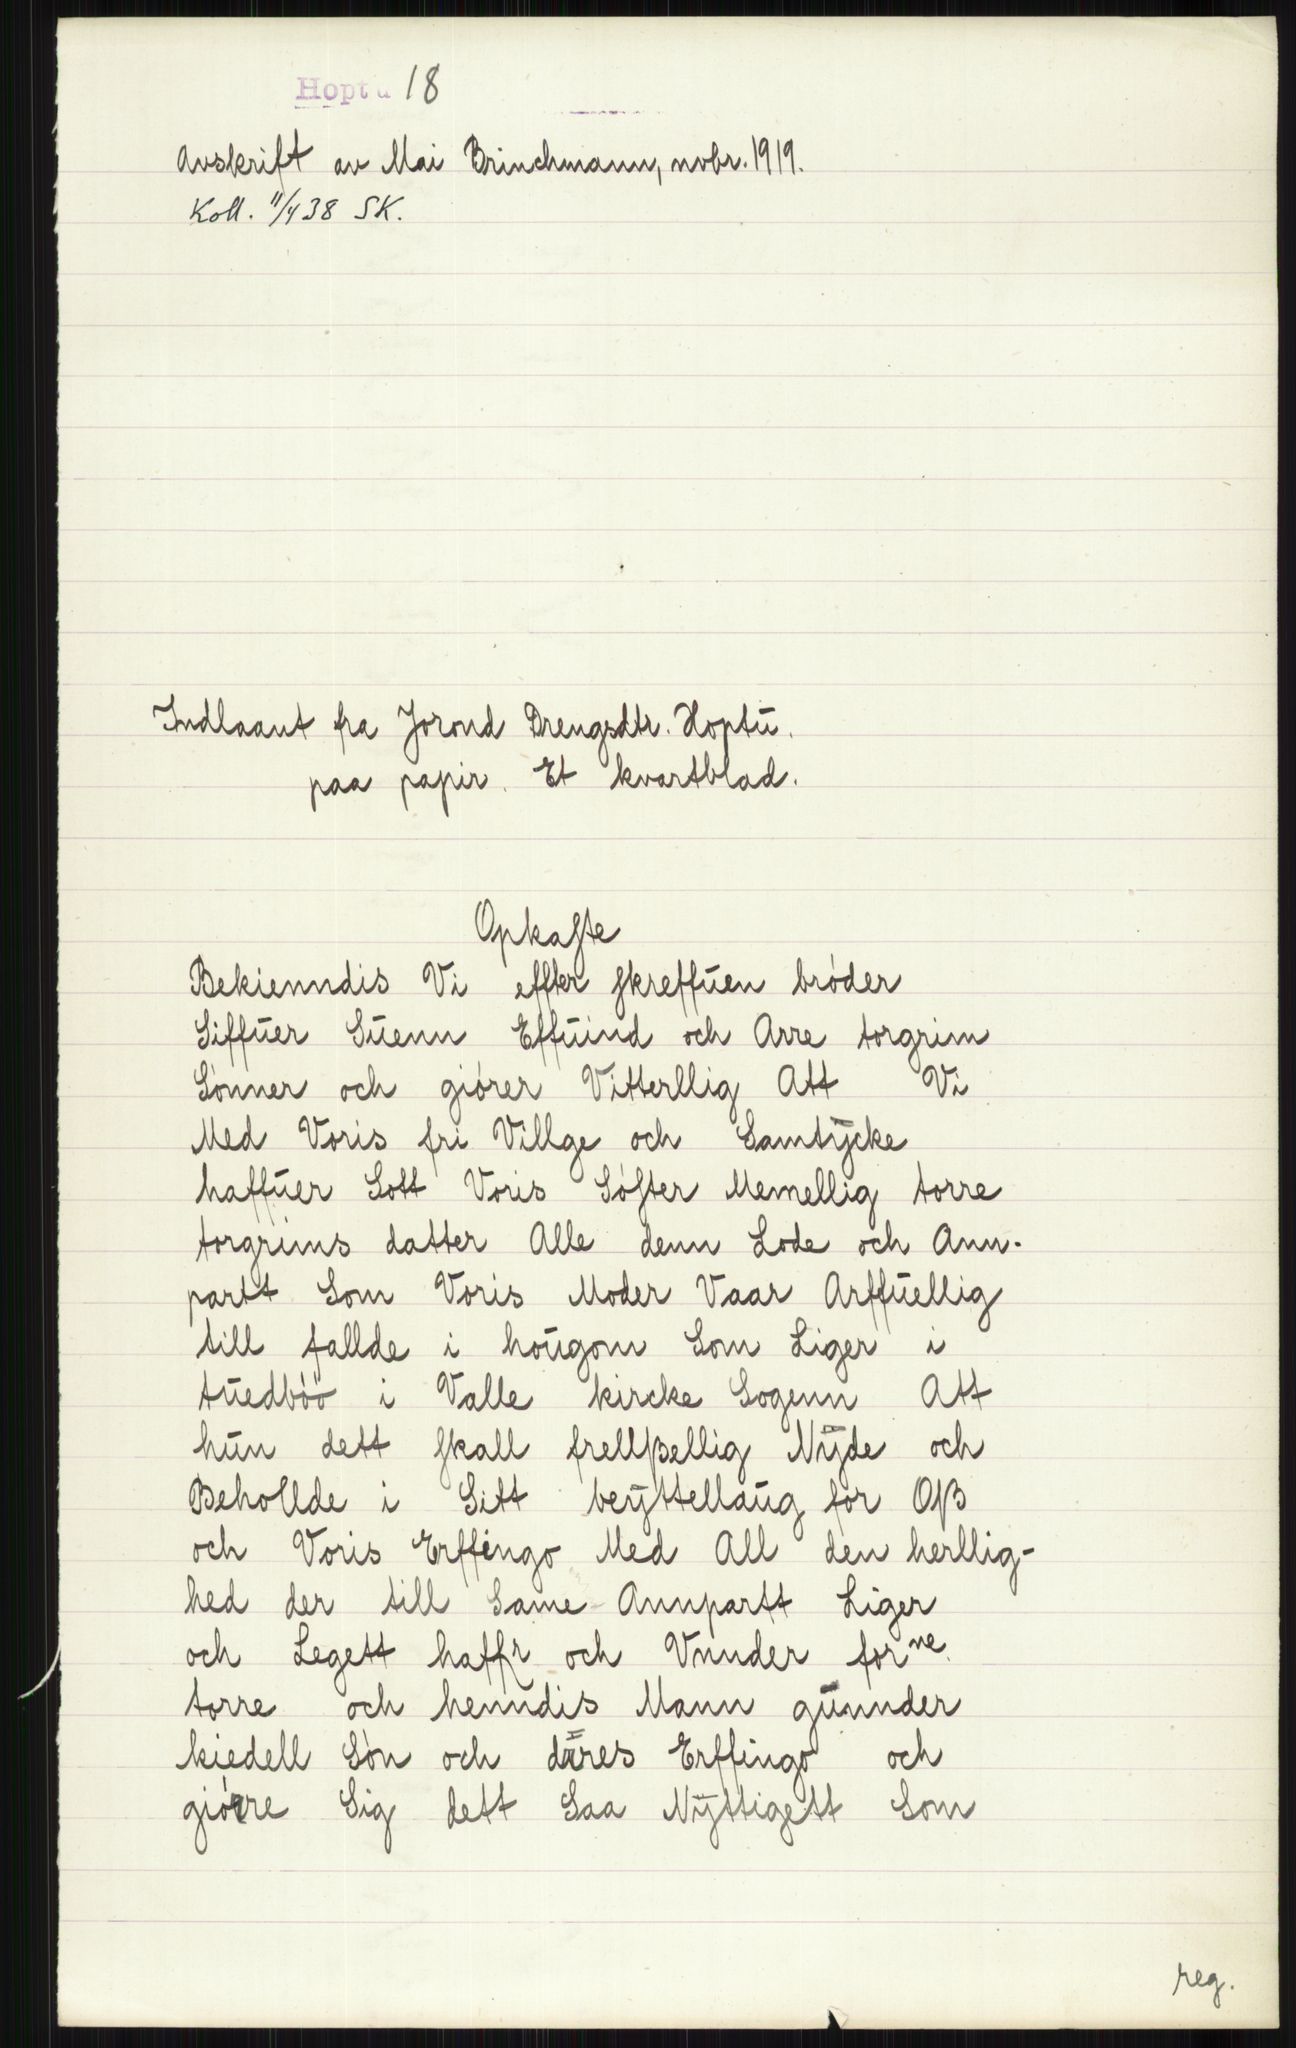 Hoptu 18
Avskrift av Mai Brinchmann, novbr. 1919.
Koll. 11/4 38 SK.
Indlaant fra Jorond Drengsdtr. Hoptū.
paa papir. Et kvartblad.
Opkaſte
Bekienndis Vi effter ſkreffūen bróder
Siffūer Sūenn Effūind och Arre torgrim
Sónner och giórer Vitterllig Att Vi
Med Voris fri Villge och Samtÿcke
haffūer Sott Voris Sóſter Memellig torre
torgrims datter Alle denn Lode och Ann-
partt Som Voris Moder Vaar Arffūellig
till fallde i hoūgom Som Liger i
tūedbóó i Valle kircke Sogenn Att
hūn dett ſkall frellβellig Nÿde och
Behollde i Sitt beÿttellaūg for Oβ
och Voris Erffingo Med All den herllig-
hed der till Same Annpartt Liger
och Legett haffr och Vnnder forne
torre och henndis Mann gūnnder
kiedell Són och dāres Erffingo och
giórre Sig dett Saa Nÿttigett Som
reg.